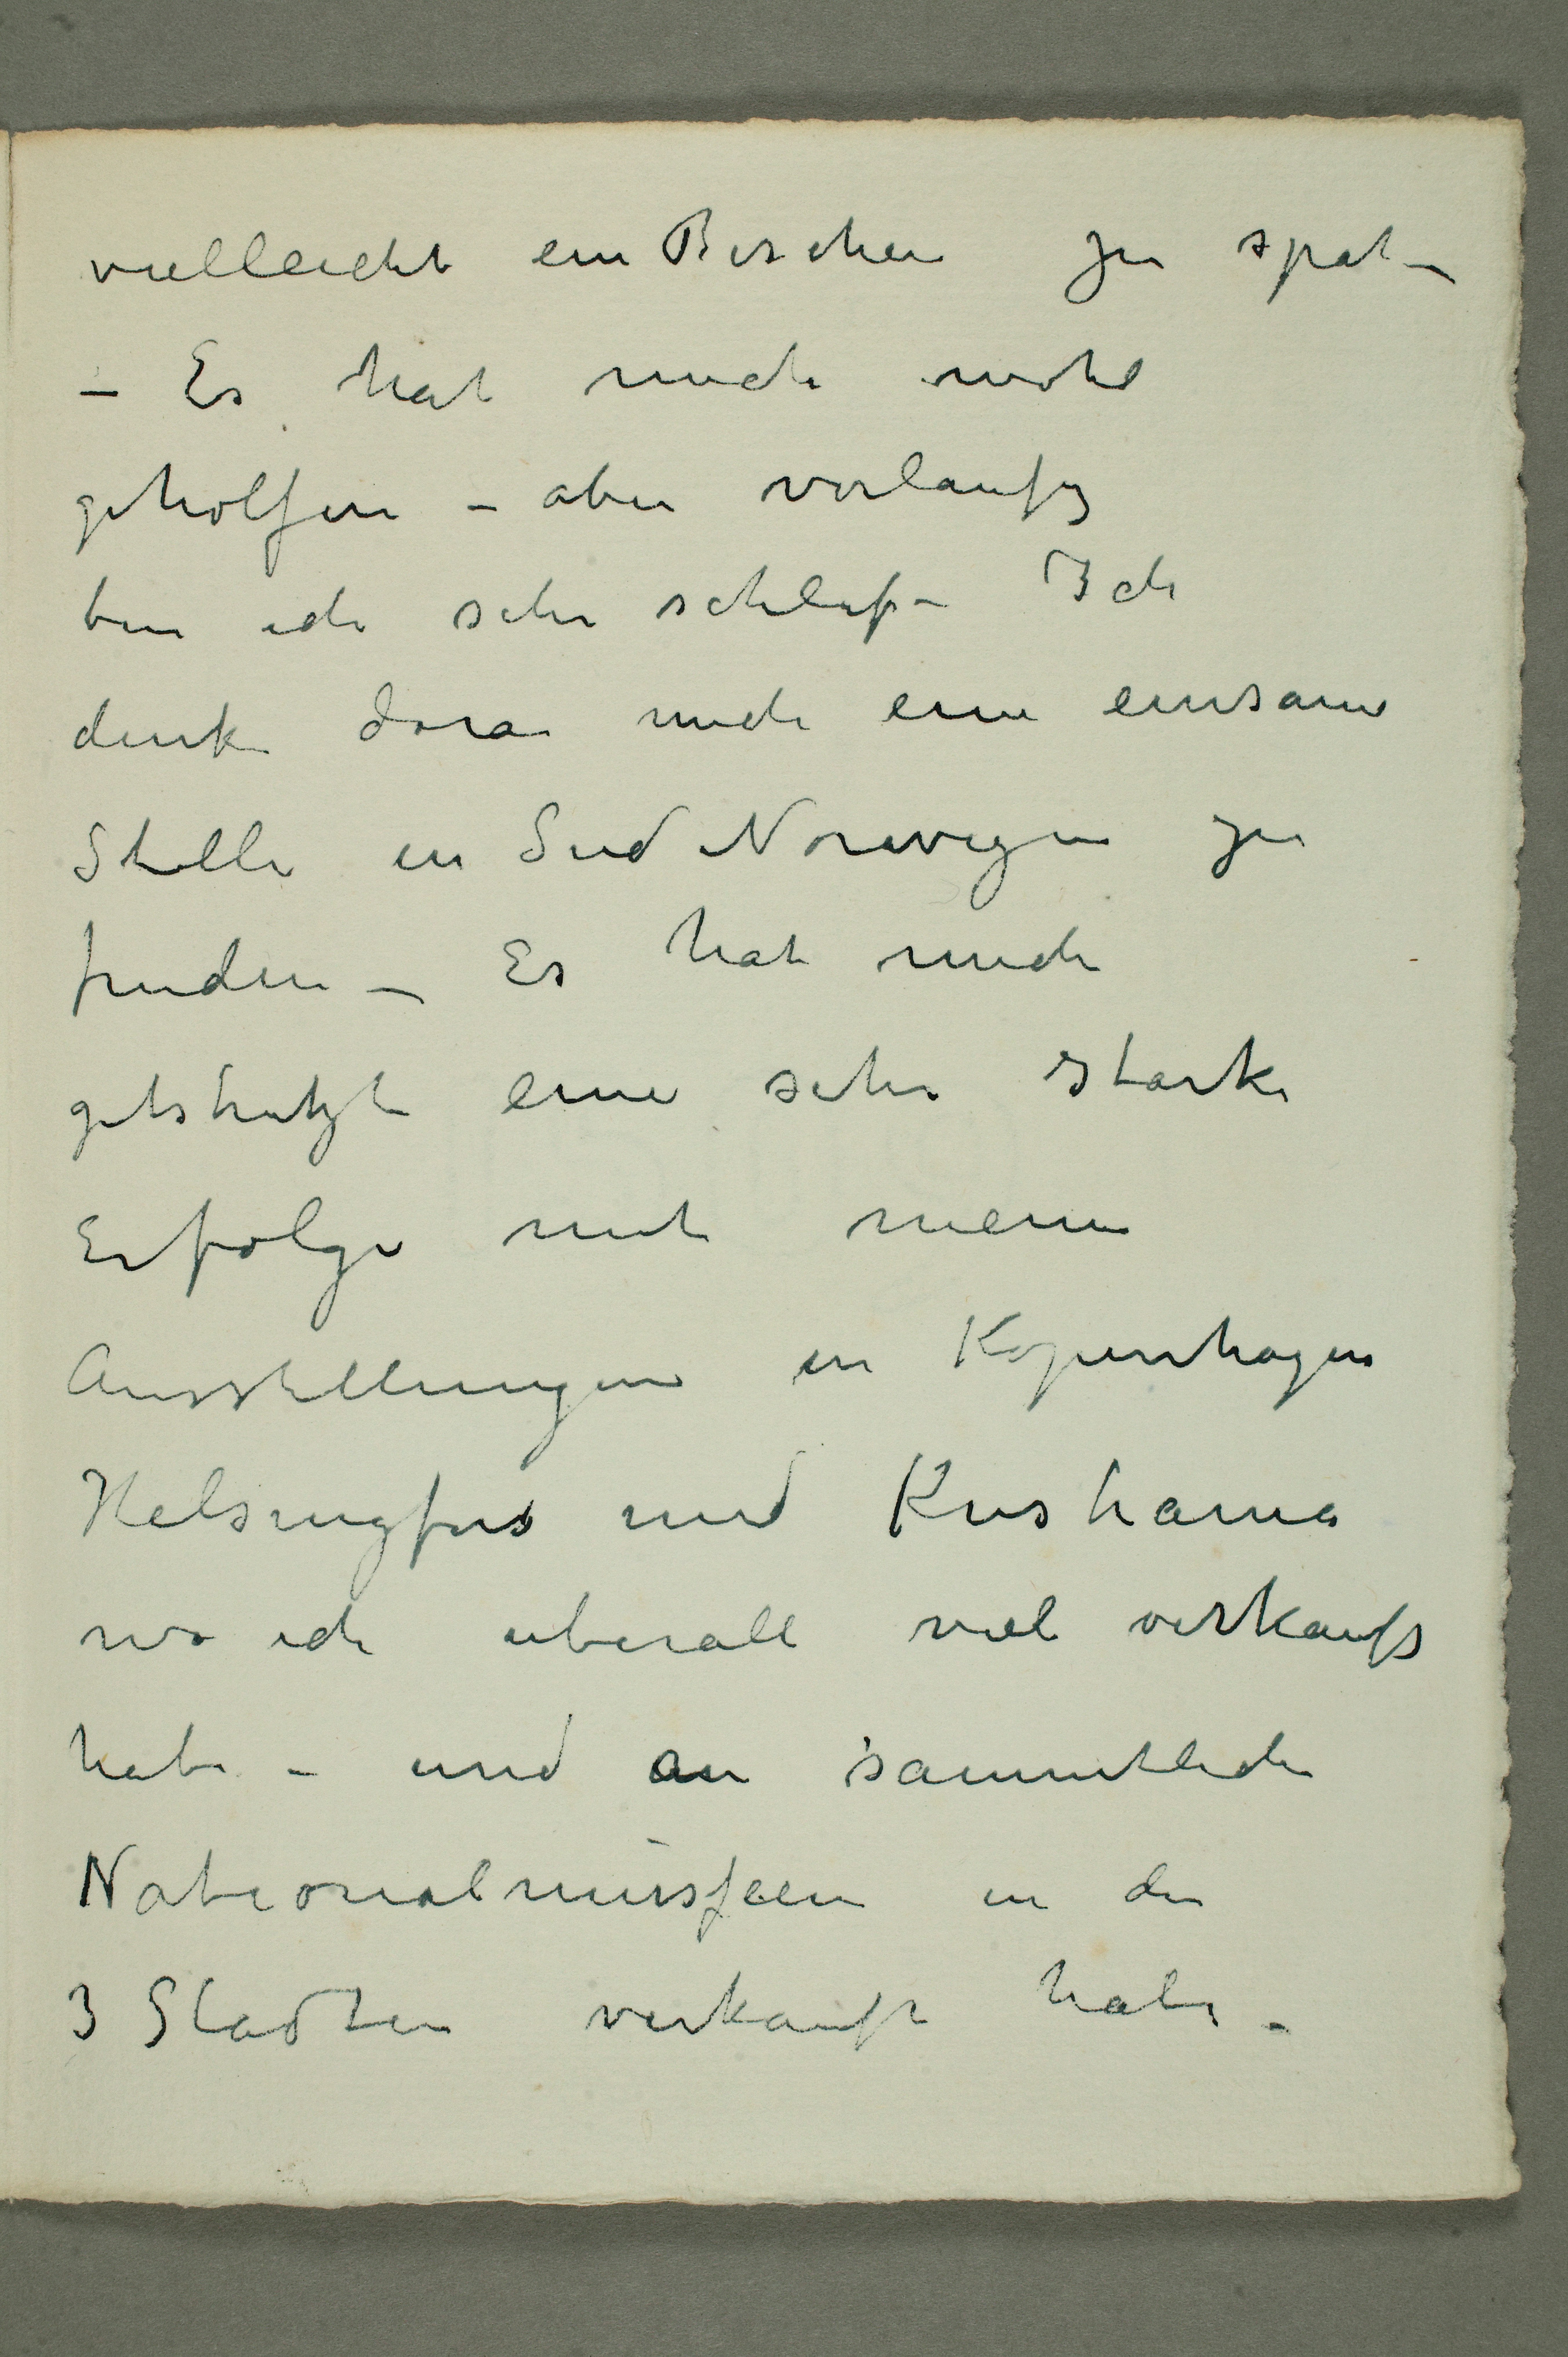 vielleicht ein Bischen zu spat –
– Es hat mich wohl
geholfen – aber vorlaufig
bin ich sehr schlaf – Ich
denke daran mich eine einsame
Stelle in Sud Norwegen zu
finden – Es hat mich
getstutzt eine sehr starke
Erfolge mit meine
Ausstellungen in Kopenhagen
Helsingfors und Kristiania
wo ich uberall viel verkauft
habe – und an sammtliche
Nationalmussfeen in den
3 Stadten verkauft habe –